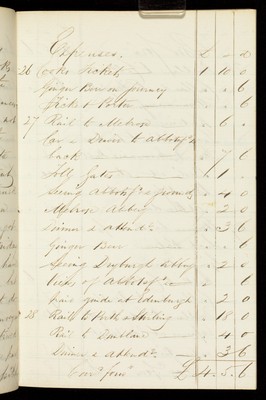 Expenses. £ - d
26 Cooks Tickets — 1 10 0
Ginger Beer on journey — . . 6
Ticket Porter — . . 6
27 Rail to Melrose — . 6 .
Car & Driver to Abbotsfd &
back — . 7 6
Toll Gates — . 1 .
Seeing Abbotsfd & grounds . 4 0
Melrose Abbey . 2 0
Dinner & attendce . 3 6
Ginger Beer — . . 6
Seeing Dryburgh Abbey . 2 0
Views of Abbotsfd &c — . . 6
guide at Edinburgh . 2 0
28 Rail to Perth & Stirling . 18 0
Rail to Dunblane — . 4 0
Dinner & attendce — . 3 6
£ 4 . 5 . 6